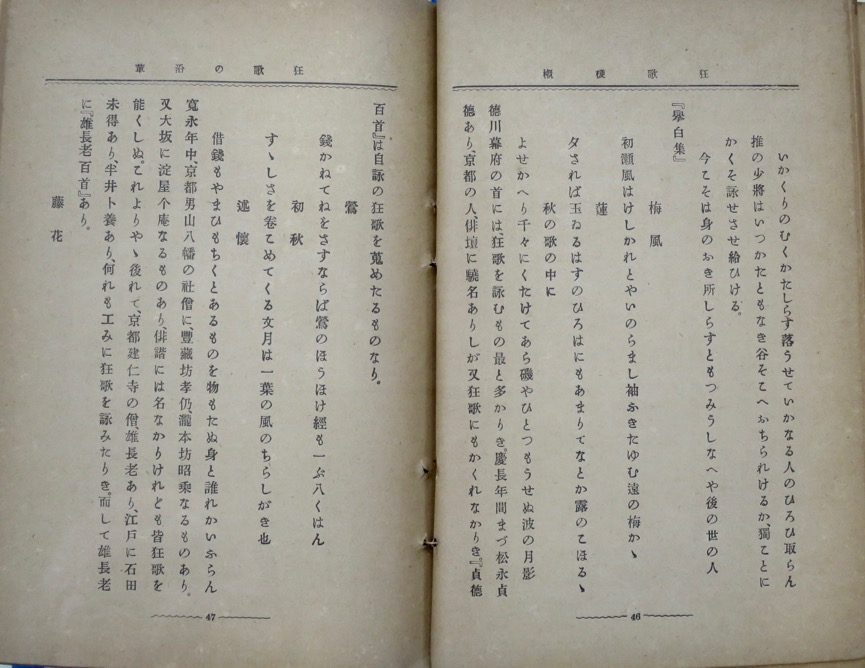 狂歌樸樕
いかくりのむくかたしらす落うせていかなる人のひろひ取らん
推の少將はいつかたともなき谷そこへおちられけるか、獨ことに
かくそ詠せさせ給ひける。
今こそは身のおき所しらすともつみうしなへや後の世の人
『擧白集』
梅風
初瀬風はけしかれとやいのらまし袖ふきたゆむ遠の梅かゝ
蓮
夕されば玉ゐるはすのひろはにもあまりてなとか露のこほるゝ
秋の歌の中に
よせかへり千々にくたけてあら磯やひとつもうせぬ波の月影
德川幕府の首には、狂歌を詠むもの最と多かりき。慶長年間まづ松永貞
德あり、京都の人、俳壇に驍名ありしが又狂歌にもかくれなかりき。『貞德
46
狂歌の沿革
百首』は自詠の狂歌を蒐めたるものなり。
鶯
錢かねてねをさすならば鶯のほうほけ經も一ぶ八くはん
初秋
すゝしさを卷こめてくる文月は一葉の風のちらしがき也
述懷
借錢もやまひもちくとあるものを物もたぬ身と誰れかいふらん
寬永年中、京都男山八幡の社僧に豐藏坊孝仍、瀧本坊昭乘なるものあり。
又大坂に淀屋个庵なるものあり、俳諧には名なかりけれども皆狂歌を
能くしぬ。これよりやゝ後れて、京都建仁寺の僧、雄長老あり、江戸に石田
未得あり、半井卜養あり、何れも工みに狂歌を詠みたりき。而して雄長老
に『雄長老百首』あり。
藤花
47